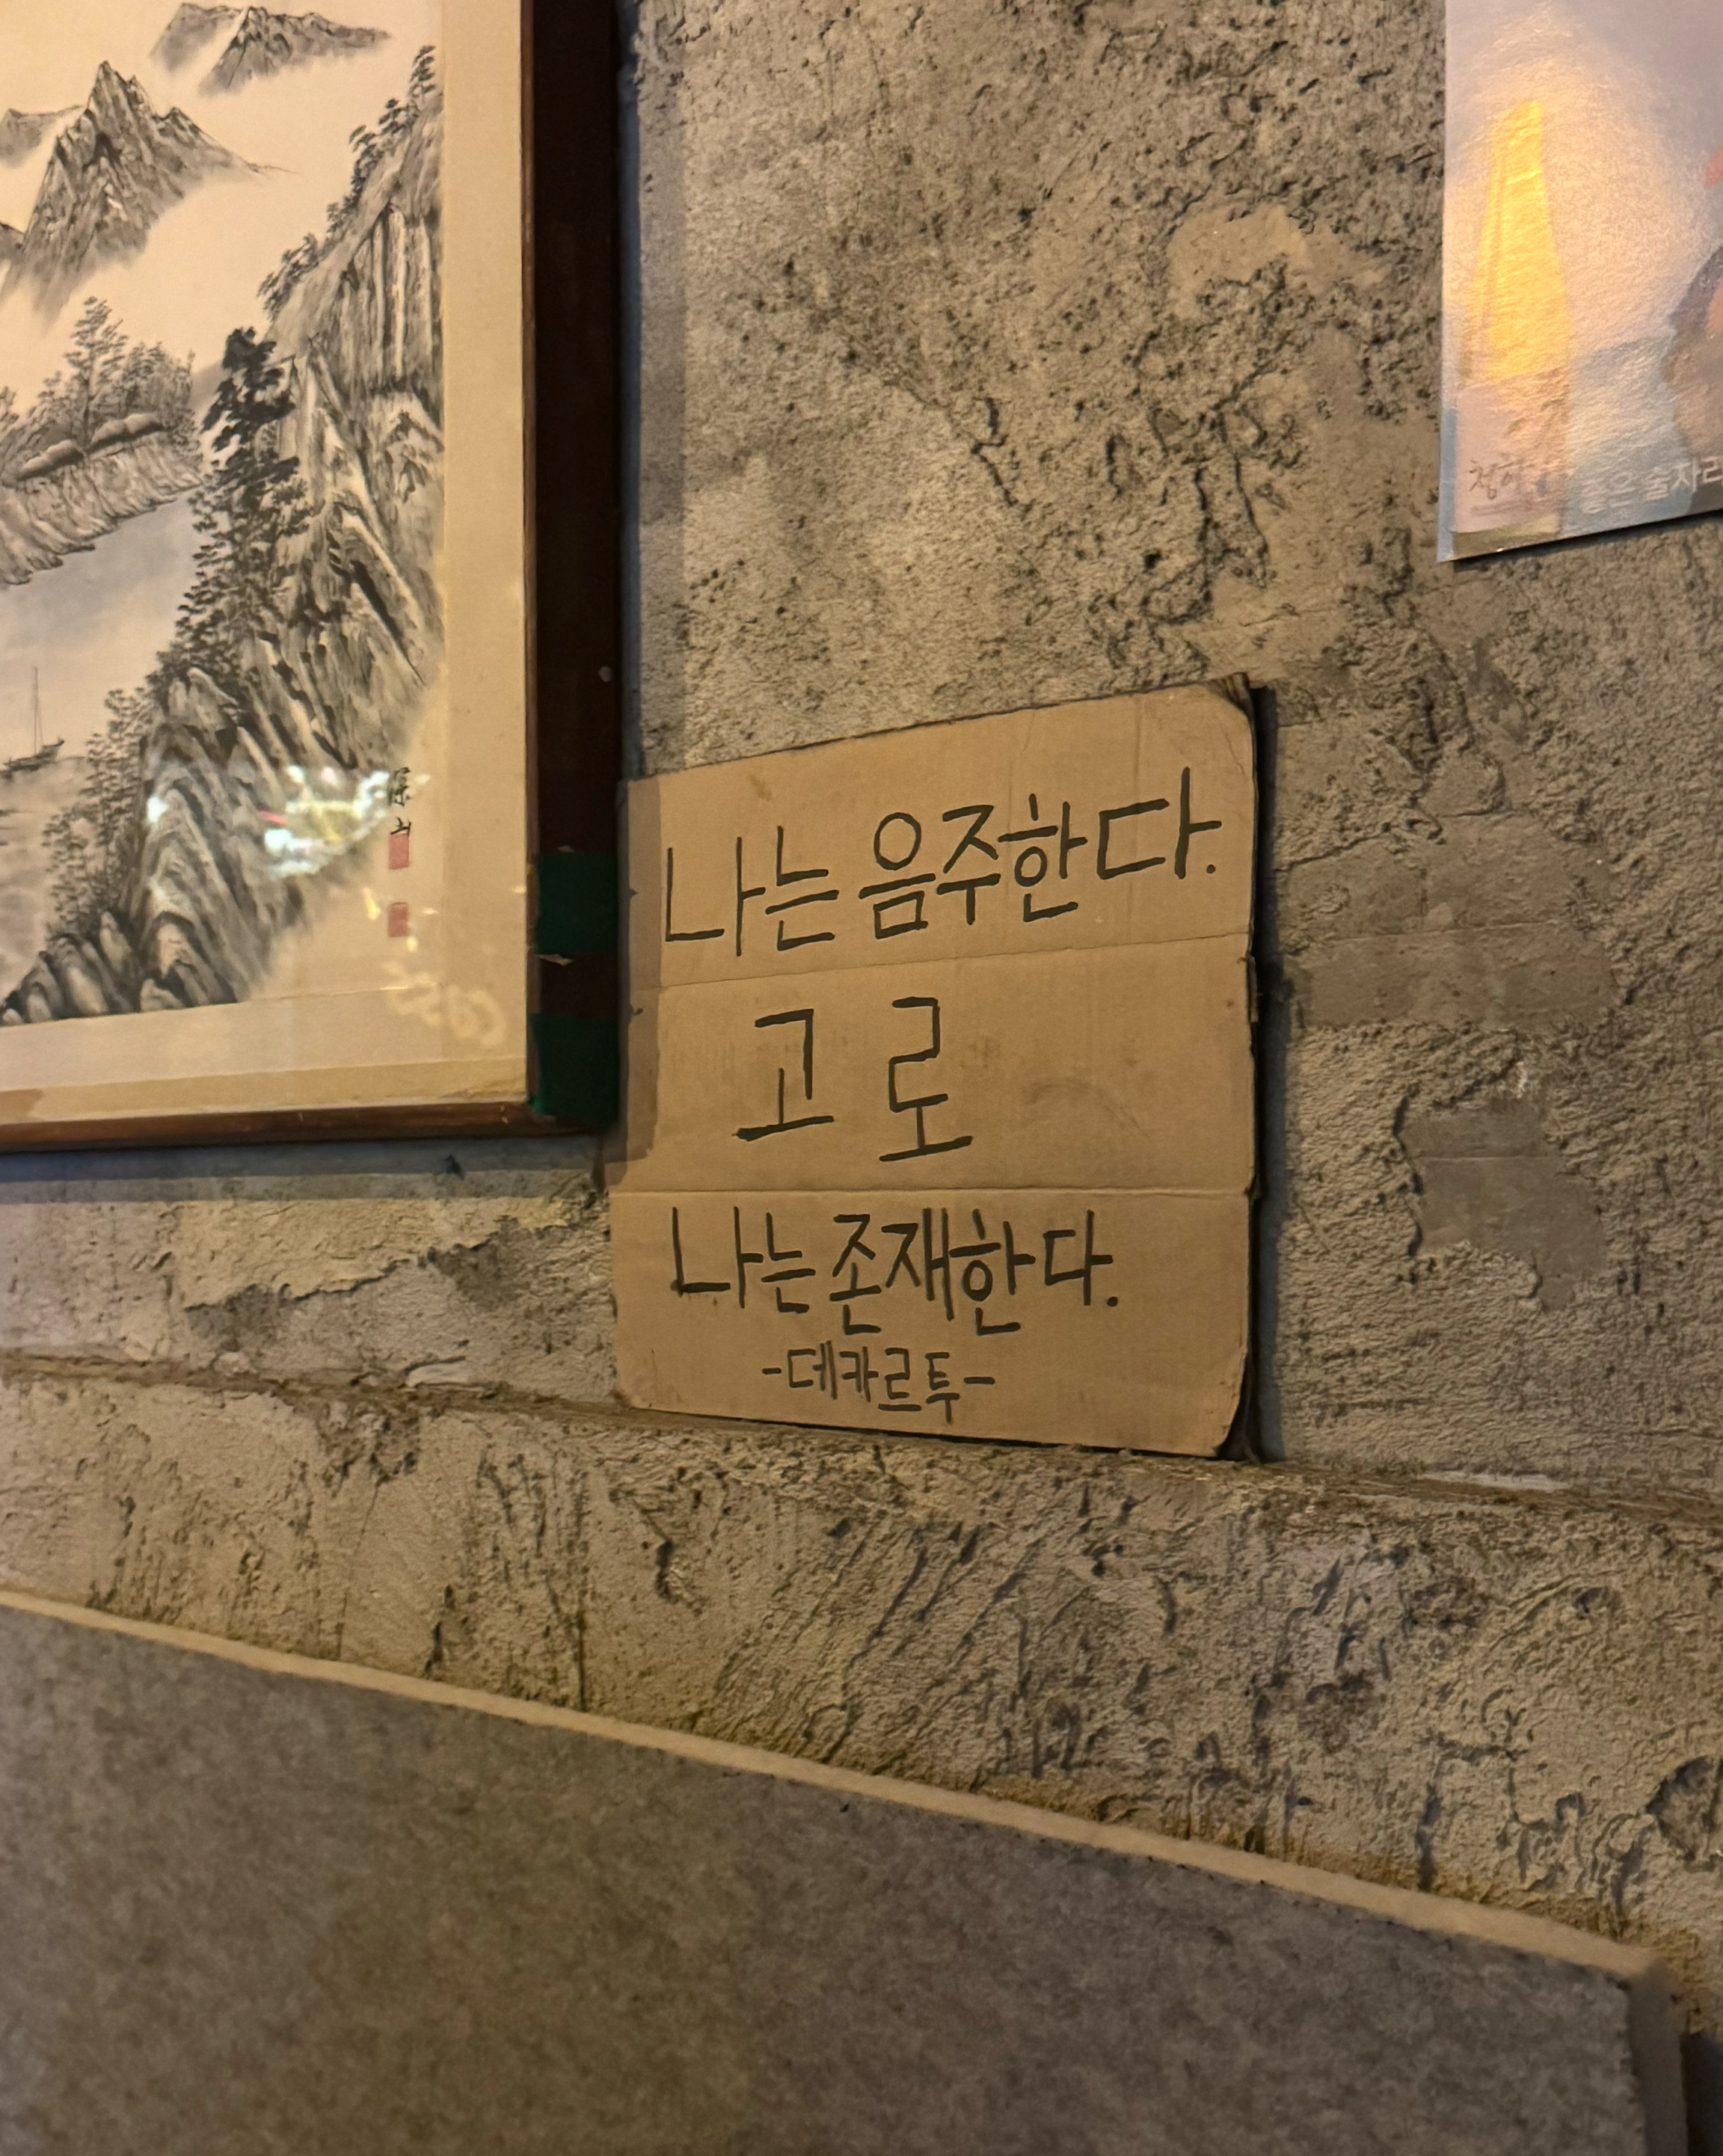 나는 음주한다.
고로
나는 존재한다.
-데카르투-
좋은 술자리